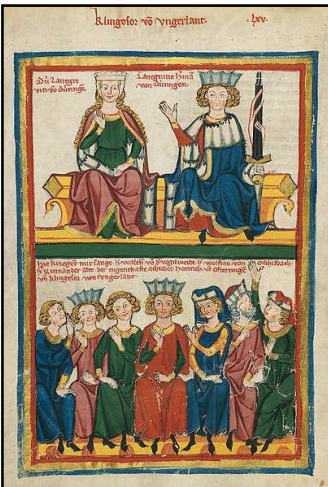 Klingesor võ vngerlant. lxv.
Dú Lantgre
vin võ dúringe.
Lantgraue Hmã
von Dúringen.
Hie kriegent mit sange h̾ walth̾ võ d̾ vogilweide h̾ wolfran von Eschilbach.
h̾ Reinman der alte. der tugenthafte schriber Heinrich võ Ofteringẽ
vñ Klingesor von vngerlant.